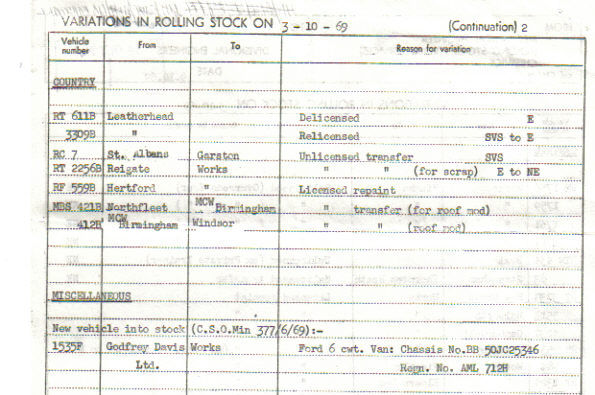 VARIATIONS IN ROLLING STOCK ON 3 - 10 - 69 (Continuation) 2
Vehicle number From To Reason for variation
COUNTRY
RT 611B Leatherhead Delicensed E
3309B " Relicensed SVS to E
RC 7 St. Albans Garston Unlicensed transfer SVS
RT 2256B Reigate Works " " (for scrap) E to NE
RF 559B Hertford " Licensed repaint
MBS 421B Northfleet MCW Birmingham " transfer (for roof mod)
412B MCW Birmingham Windsor " " (roof mod)
MISCELLANEOUS
New vehicle into stock (C.S.O.Min 377/6/69):-
1535F Godfrey Davis Works Ford 6 cwt. Van: Chassis No.BB 50JC25346
Ltd. Regn. No. AML 712H